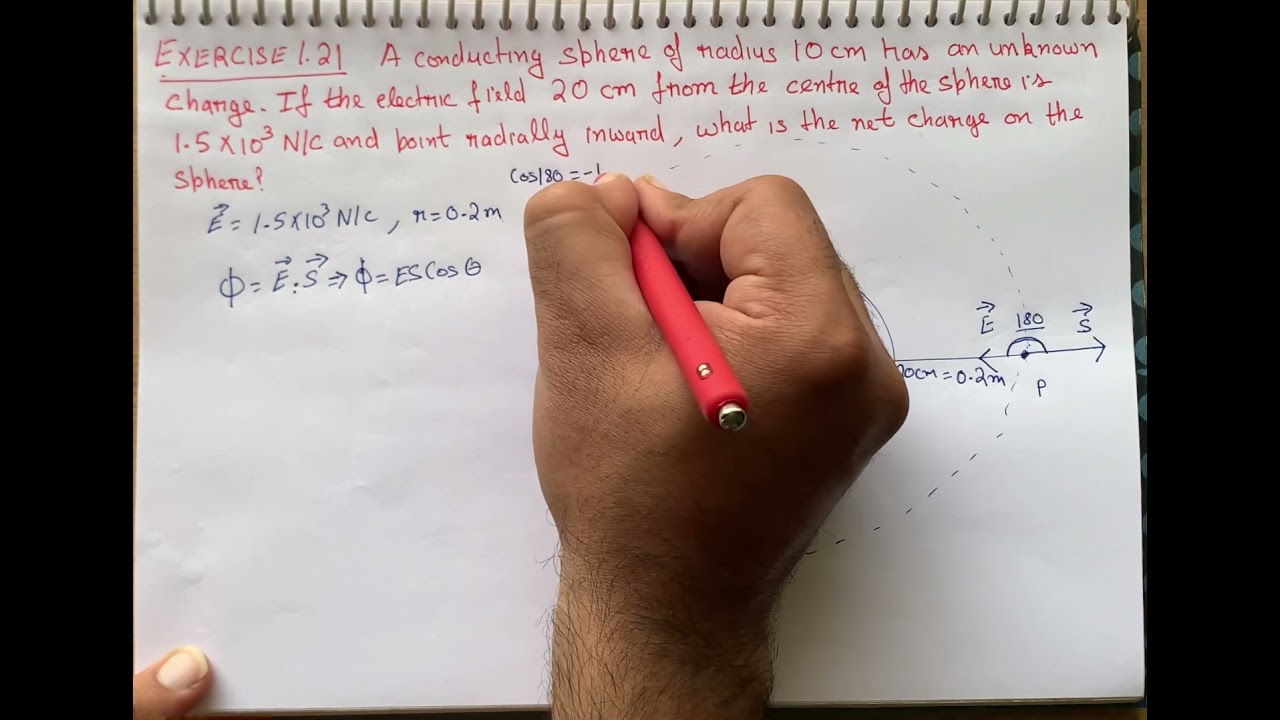 EXERCISE 1.21 A conducting sphere of radius 10 cm has an unknown
charge. If the electric field 20 cm from the centre of the sphere is
1.5 X 10³ N/C and point radially inward, what is the net charge on the
sphere?
Cos180 = -1
E⃗ = 1.5X10³ N/C , r = 0.2m
ϕ = E⃗ . S⃗ ⇒ ϕ = ES Cos θ
E⃗ 180 S⃗
0cm = 0.2m
P